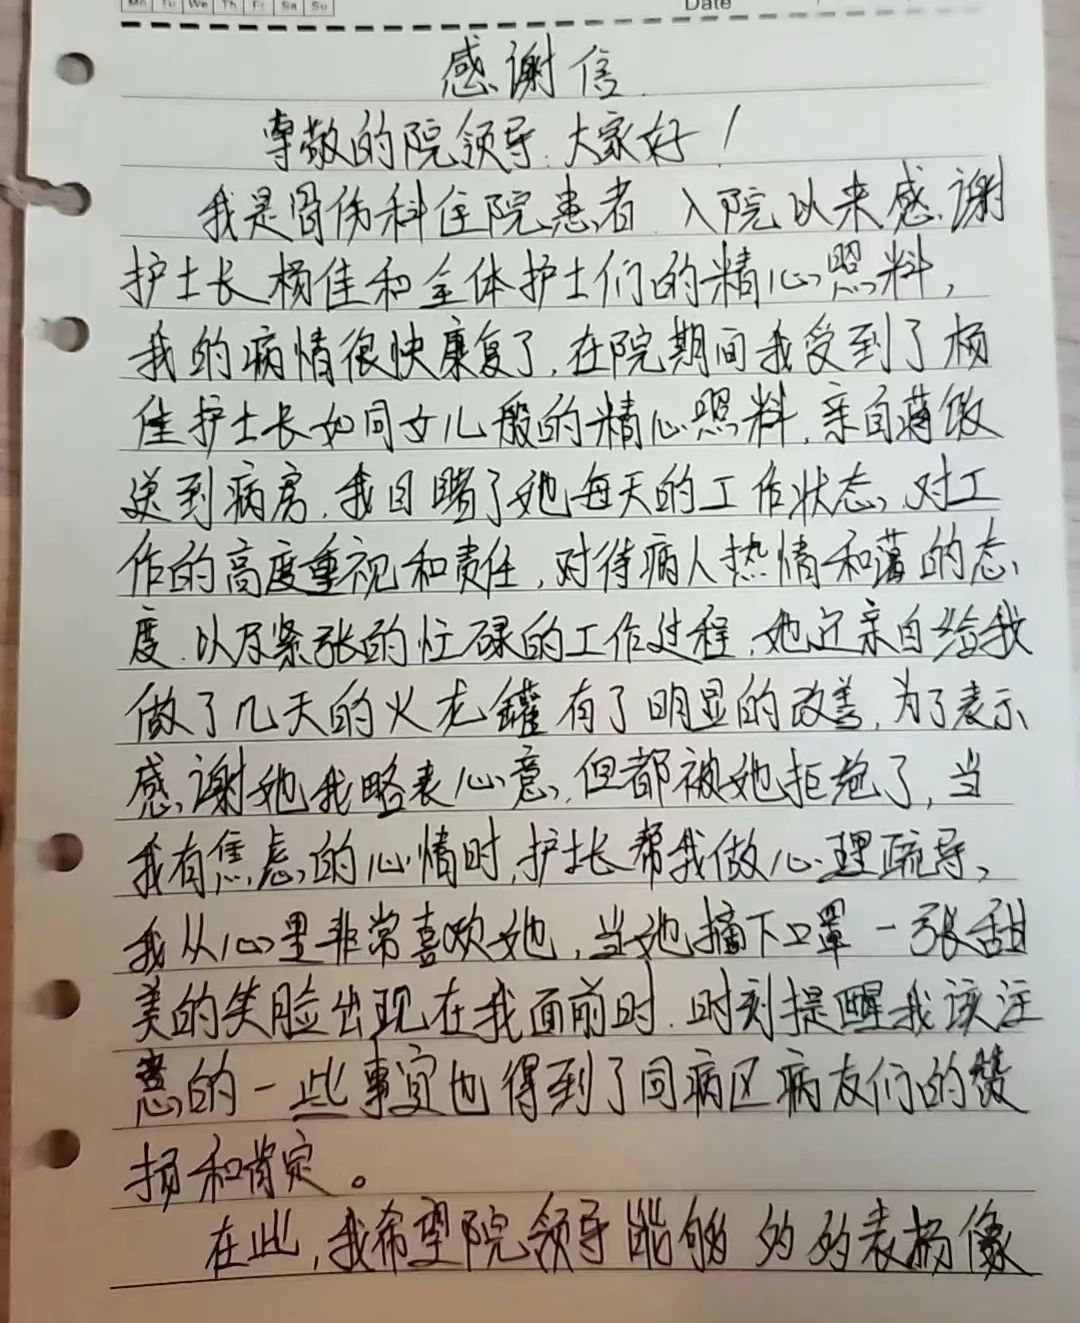 Mo Tu We Th Fr Sa Su
Date
感谢信.
尊敬的院领导.大家好!
我是骨伤科住院患者.入院以来感谢
护士长杨佳和全体护士们的精心照料,
我的病情很快康复了,在院期间我受到了杨
佳护士长如同女儿般的精心照料,亲自
送到病房,我目睹了她每天的工作状态,对工
作的高度重视和责任,对待病人热情和蔼的态
度.以及紧张的忙碌的工作过程,她还亲自给我
做了几天的火龙罐有了明显的改善,为了表示
感谢她我略表心意,但都被她拒绝了,当
我有焦虑的心情时,护士长帮我做心理疏导,
我从心里非常喜欢她,当她摘下口罩一张甜
美的笑脸出现在我面前时.时刻提醒我该注
意的一些事宜也得到了同病区病友们的赞
扬和肯定。
在此,我希望院领导能够多多表扬像